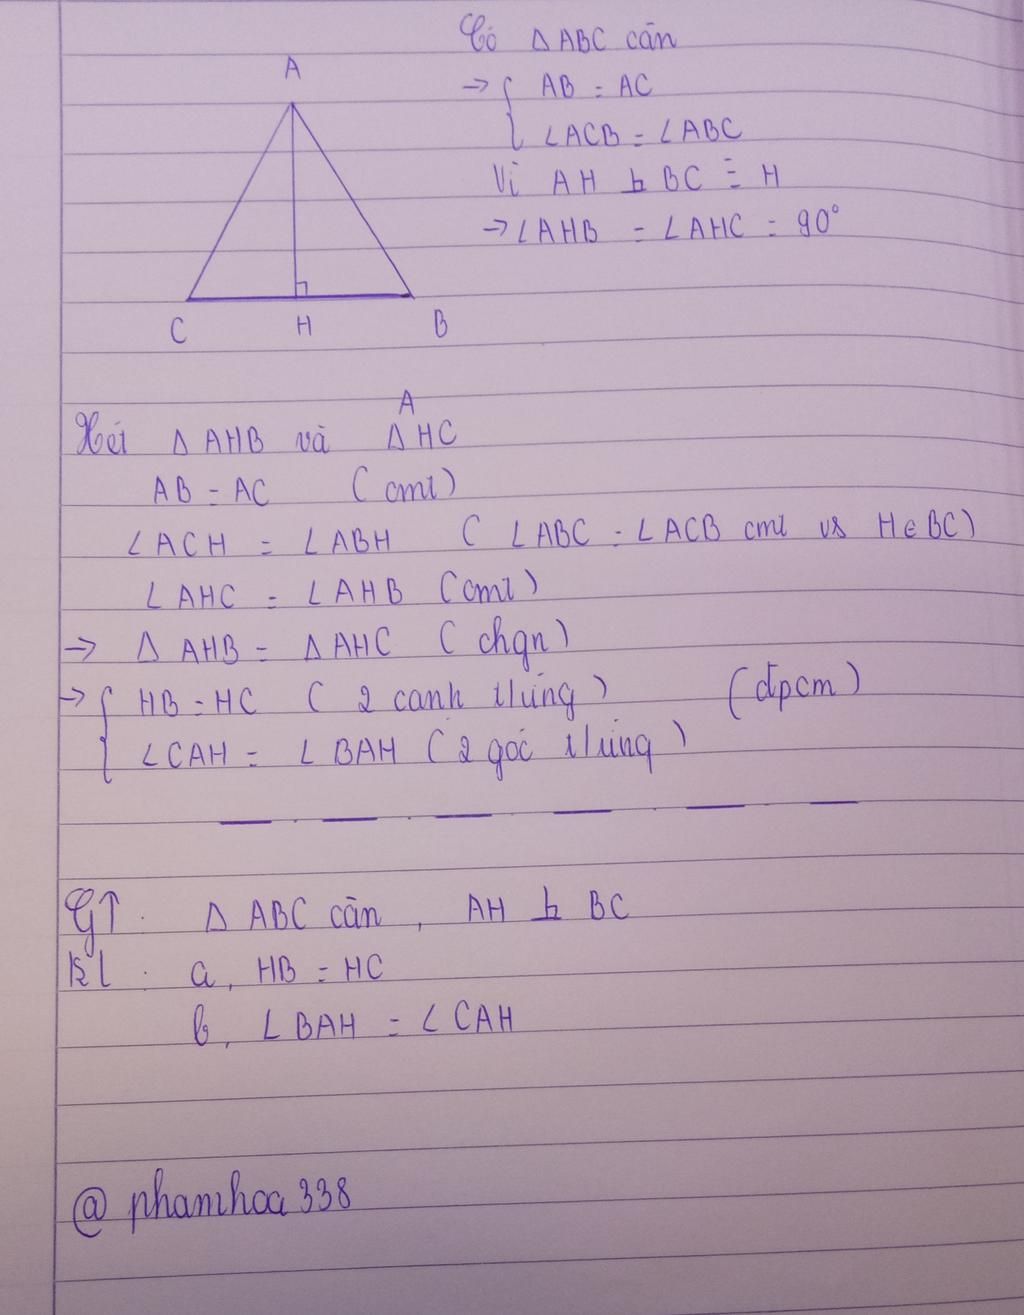 Có Δ ABC cân
→ { AB = AC
∠ACB = ∠ABC
Vì AH ⊥ BC ≡ H
→ ∠AHB = ∠AHC = 90°
A
C H B
Xét Δ AHB và Δ AHC
AB = AC (cmt)
∠ACH = ∠ABH (∠ABC = ∠ACB cmt vs H ∈ BC)
∠AHC = ∠AHB (cmt)
→ Δ AHB = Δ AHC (chgn)
→ { HB = HC (2 canh t/ứng) (đpcm)
∠CAH = ∠BAH (2 góc t/ứng)
GT : Δ ABC cân, AH ⊥ BC
KL : a, HB = HC
b, ∠BAH = ∠CAH
@ phamhoa 338